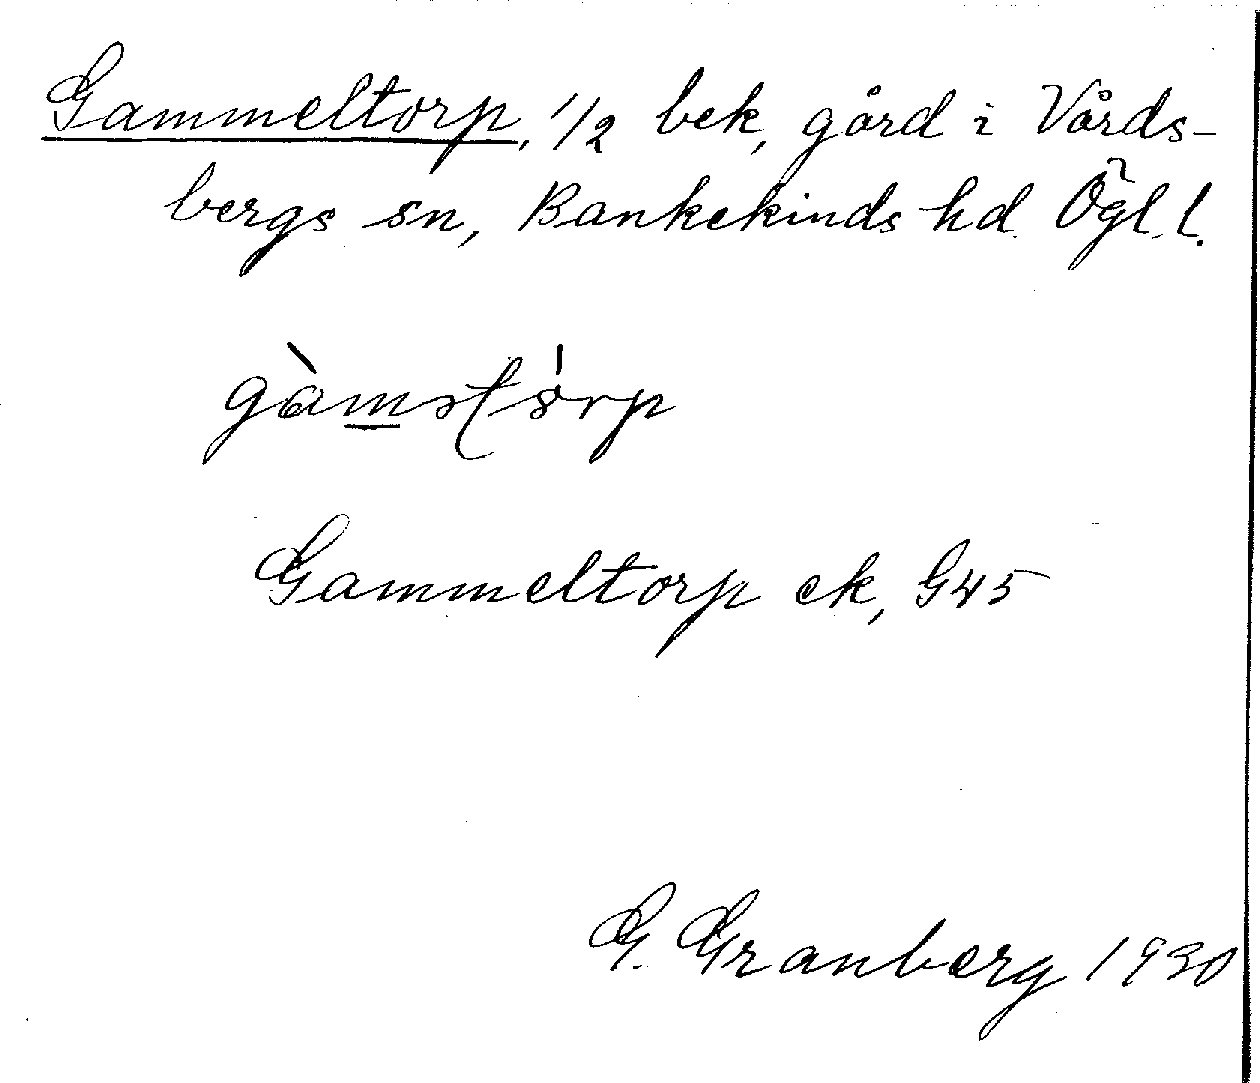 Gammeltorp, 1/2 bek, gård i Vårds-
bergs sn, Bankekinds hd. Ögl. l.
Gammeltorp ek, G45
G. Granberg 1930